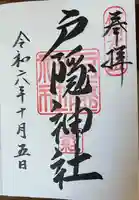 奉拝
戸隠神社
令和六年十月五日